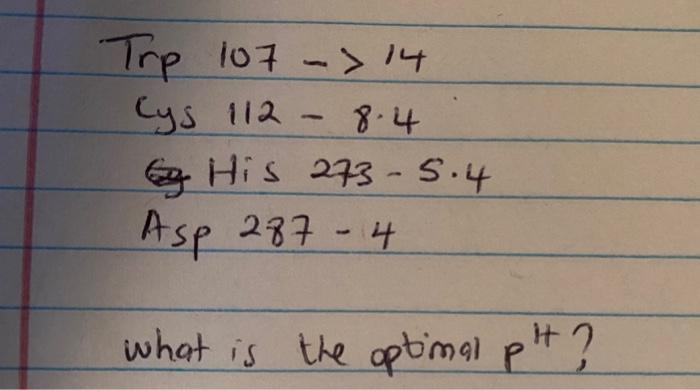 Trp 107 -> 14
Cys 112 - 8.4
His 273 - 5.4
Asp 287 - 4
what is the optimal pH?